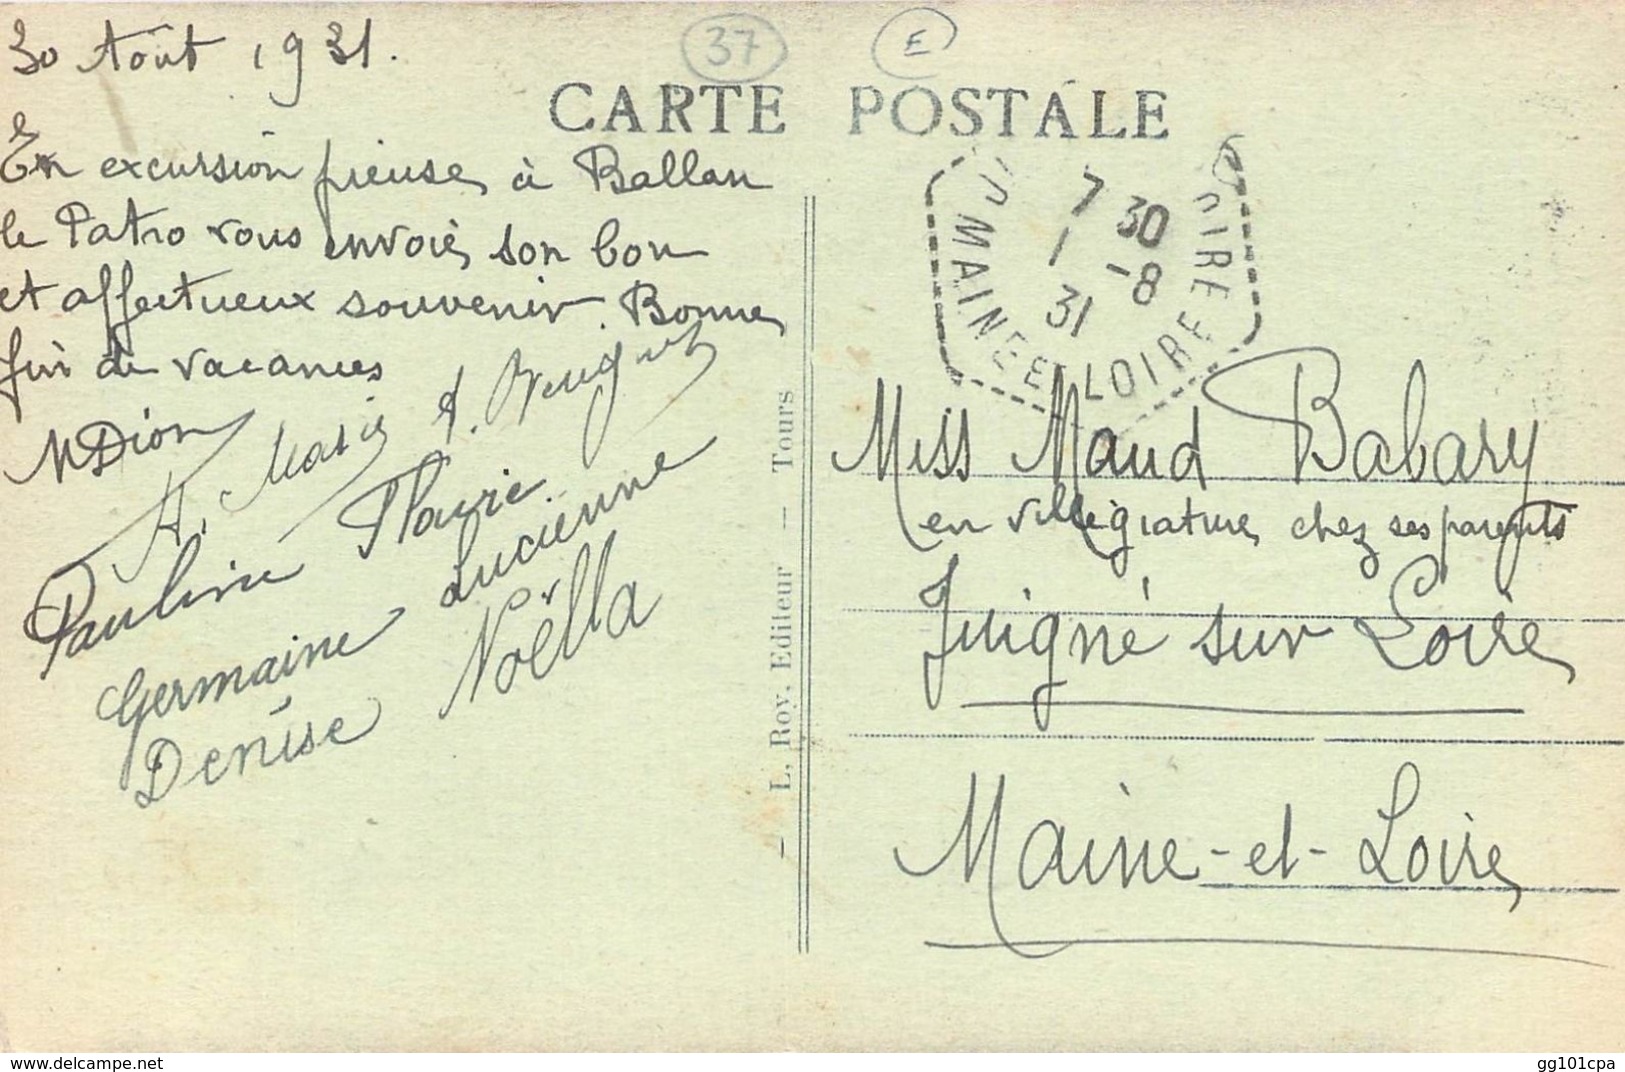 30 Août 1931.
37
E
CARTE POSTALE
En excursion pieuse à Ballan
le Patro vous envoie son bon
et affectueux souvenir. Bonne
fin de vacances
MDion
A. Marie
Pauline Flavie
Germaine Lucienne
Denise Noëlla
7 30
1 -8
31
MAINE ET LOIRE
L. Roy, Editeur — Tours
Miss Maud Babary
en villégiature chez ses parents
Juigné sur Loire
Maine-et-Loire
www.delcampe.net
gg101cpa